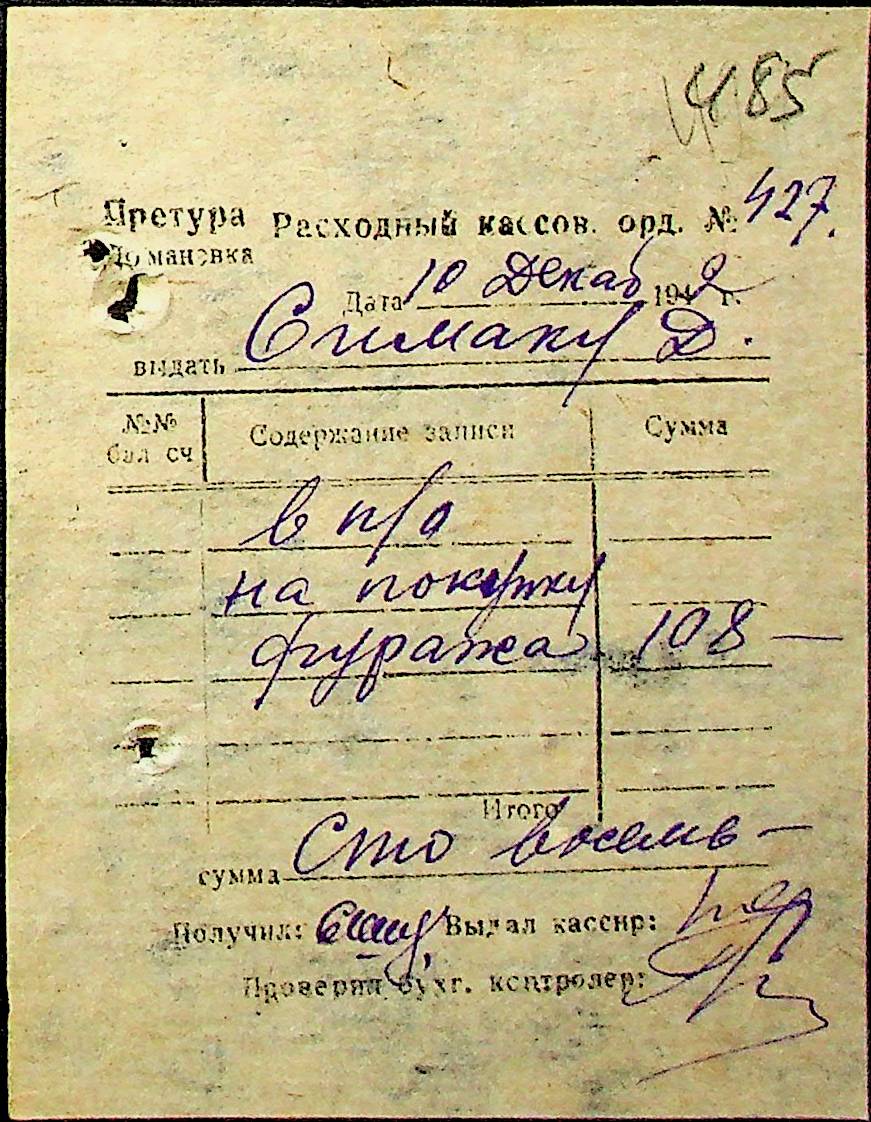 485
Претура Расходный кассов. орд. № 427.
Домановка
Дата 10 Декаб 1942 г.
выдать Симаку Д.
№№ бал сч Содержание записи Сумма
в п/о
на покупку
фуража 108 —
Итого
сумма Сто восемь —
Получил: Выдал кассир:
Проверил бухг. контролер: